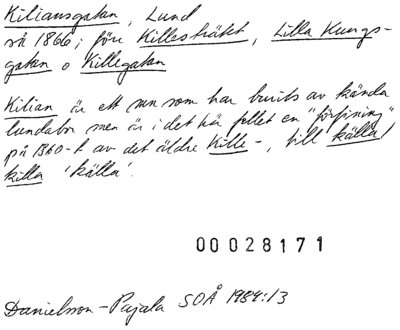 Kiliansgatan, Lund
så 1866; före Killesträtet, Lilla Kungs-
gatan o Killegatan
Kilian är ett nn som har burits av kända
lundabor men är i det här fallet en "förfining"
på 1860-t av det äldre Kille-, till källa/
killa 'källa'.
00028171
Danielsson-Pajala SOÅ 1984:13